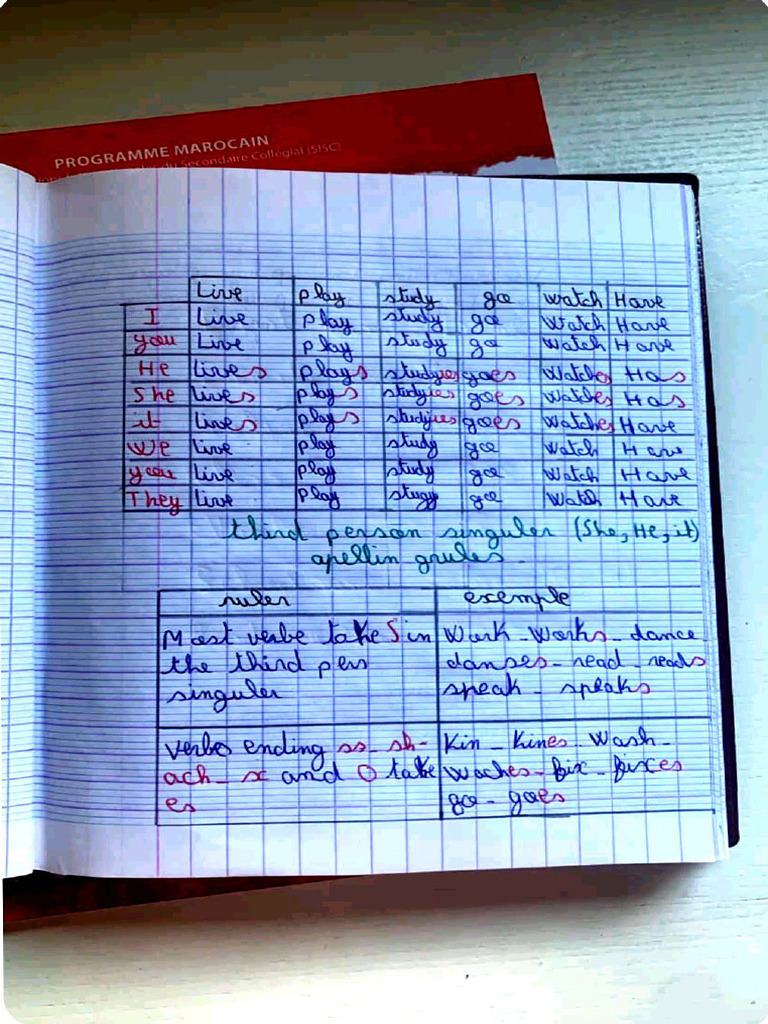 PROGRAMME MAROCAIN
du Secondaire Collégial (SISC)
Live play study go watch Have
I Live play study go watch Have
you Live play study go watch Have
He Lives plays studyies goes watches Has
She lives plays studyies goes watches Has
it Lives plays studyies goes watches Have
we live play study go watch Have
you live play study go watch Have
They live play stugy go watch Have
third person singuler (She, He, it)
apellin grules
ruler exemple
Most verbe take S in work - works - dance
the third pers danses - read - reads
singuler speak - speaks
verbes ending ss - sh - Kin - Kines - wash -
ach - x and O take waches - fix - fixes
es go - goes